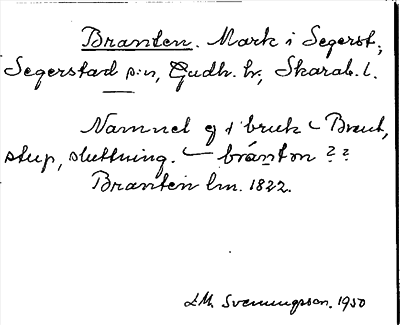 Branten. Mark i Segerst.,
Segerstad s:n, Gudh. hr, Skarab. l.
Namnet ej i bruk – Brant,
stup, sluttning. – bránton ??
Branten lm. 1822.
LM. Svenungsson. 1950